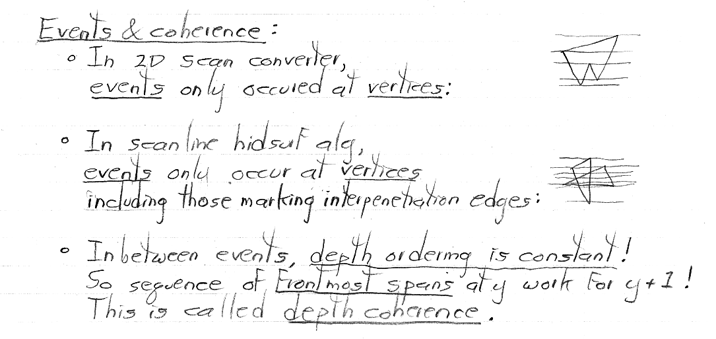 Events & coherence:
◦ In 2D scan converter,
events only occured at vertices:
◦ In scanline hidsurf alg,
events only occur at vertices
including those marking interpenetration edges:
◦ Inbetween events, depth ordering is constant!
So sequence of frontmost spans at y work for y+1!
This is called depth coherence.